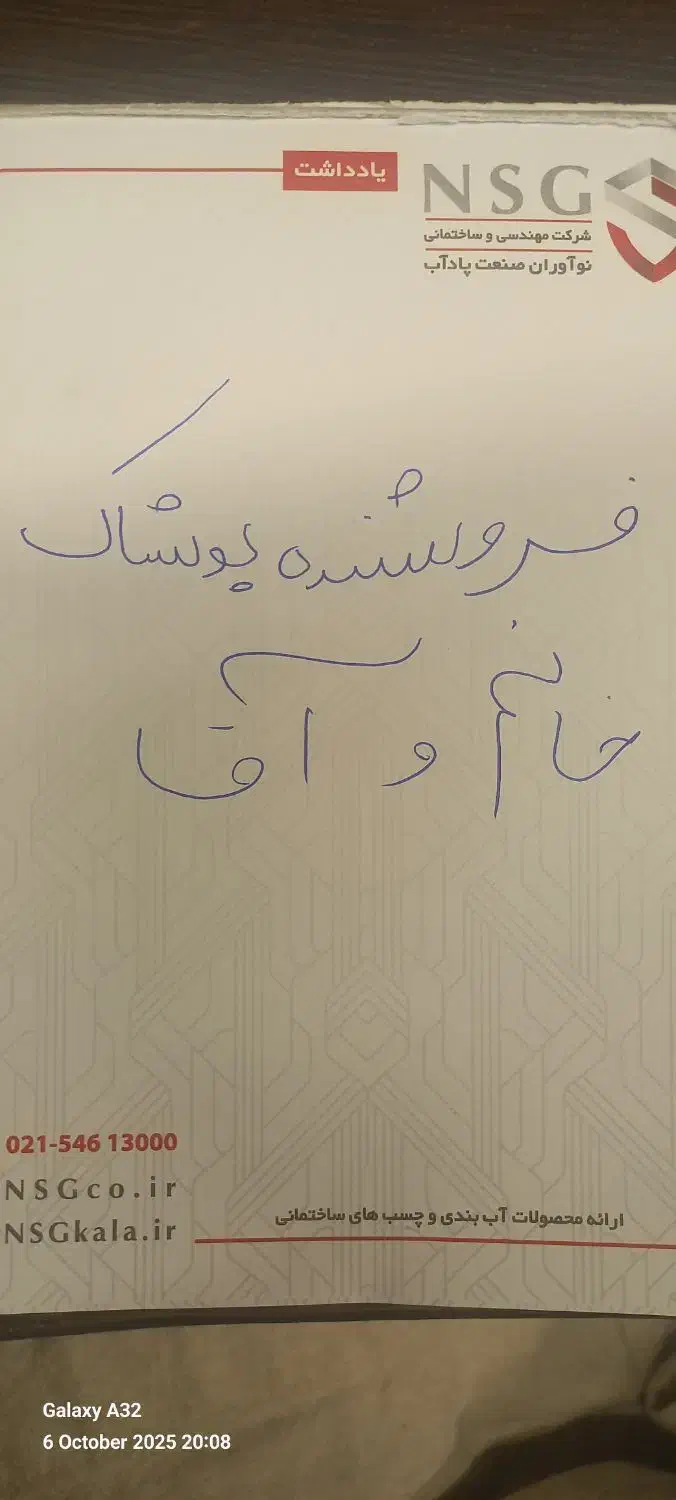 یادداشت
NSG
شرکت مهندسی و ساختمانی
نوآوران صنعت پادآب
فروشنده پوشاک
خانم و آقا
021-546 13000
NSGco.ir
NSGkala.ir
ارائه محصولات آب بندی و چسب های ساختمانی
Galaxy A32
6 October 2025 20:08